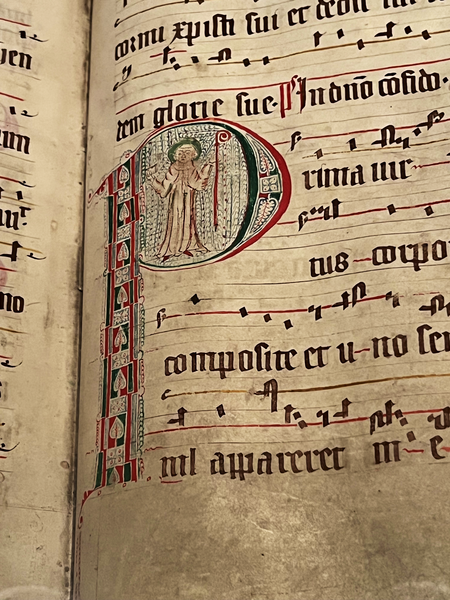 yen
cornu xpisti sui et dedit
dem glorie sue. In dno cōfido.
Prima uir
tus corpo
composite et u no ser
nil appareret m e
no